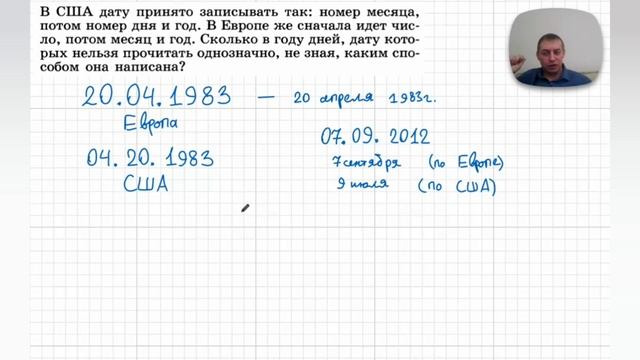 В США дату принято записывать так: номер месяца,
потом номер дня и год. В Европе же сначала идет чис-
ло, потом месяц и год. Сколько в году дней, дату кото-
рых нельзя прочитать однозначно, не зная, каким спо-
собом она написана?
20.04.1983 — 20 апреля 1983г.
Европа
07.09.2012
04.20.1983
7 сентября (по Европе)
США
9 июля (по США)